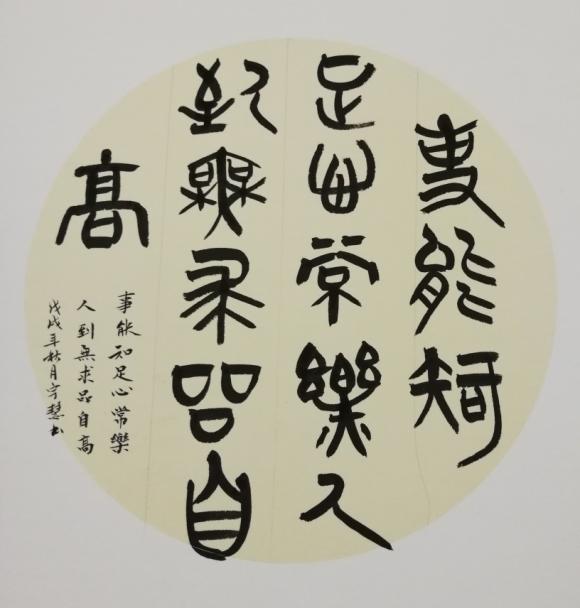 事能知
足心常樂人
到無求品自
高
事能知足心常樂
人到無求品自高
戊戌年秋月宇慧书